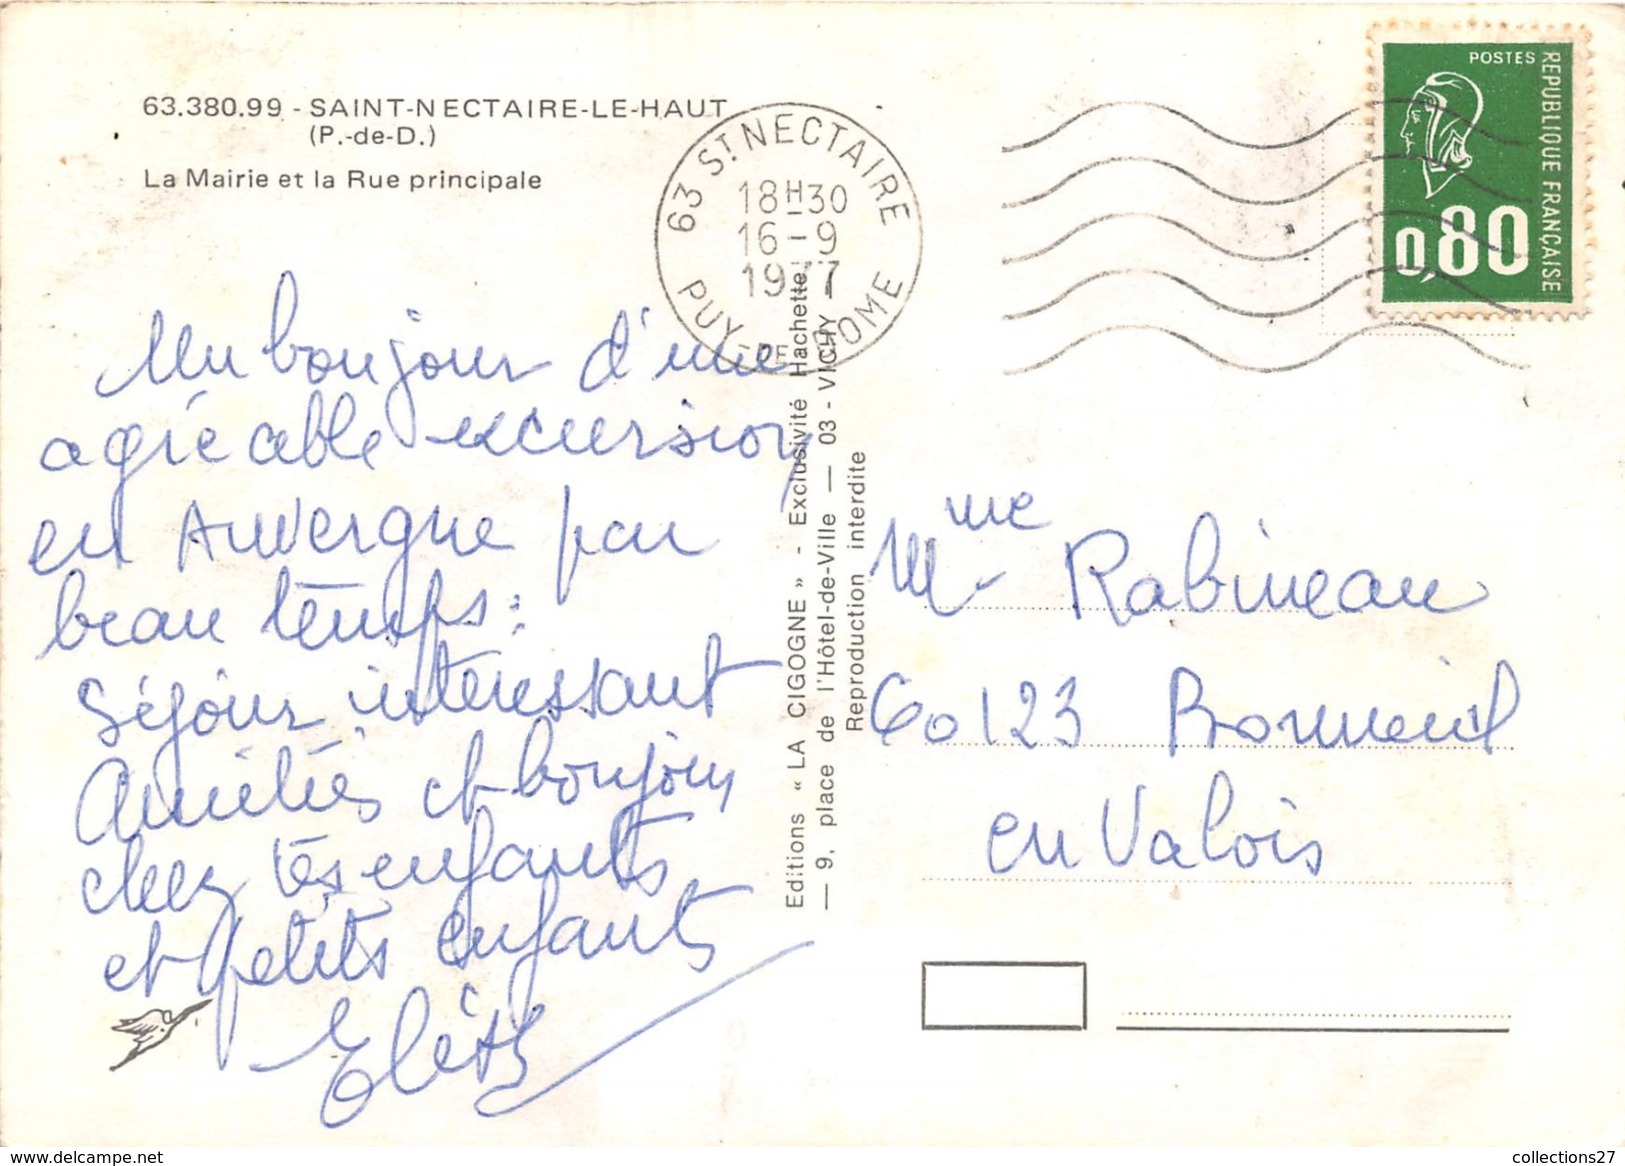 63.380.99 - SAINT-NECTAIRE-LE-HAUT
(P.-de-D.)
La Mairie et la Rue principale
63 ST NECTAIRE
18H30
16-9
1977
PUY-DE-DOME
POSTES
REPUBLIQUE FRANÇAISE
0,80
Un bonjour d'une
agréable excursion
en Auvergne par
beau temps:
Séjour intéressant
Amitiés et bonjour
chez tes enfants
et petits enfants
Editions « LA CIGOGNE » - Exclusivité Hachette
— 9, place de l'Hôtel-de-Ville — 03 - VICHY —
Reproduction interdite
Mme Rabineau
60123 Bonneuil
en Valois
delcampe.net
collections27